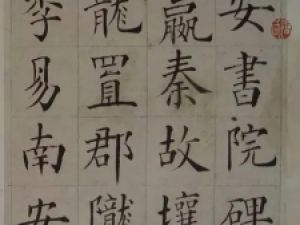 安書院碑
嬴秦故壤
龍置郡隴
李易南安